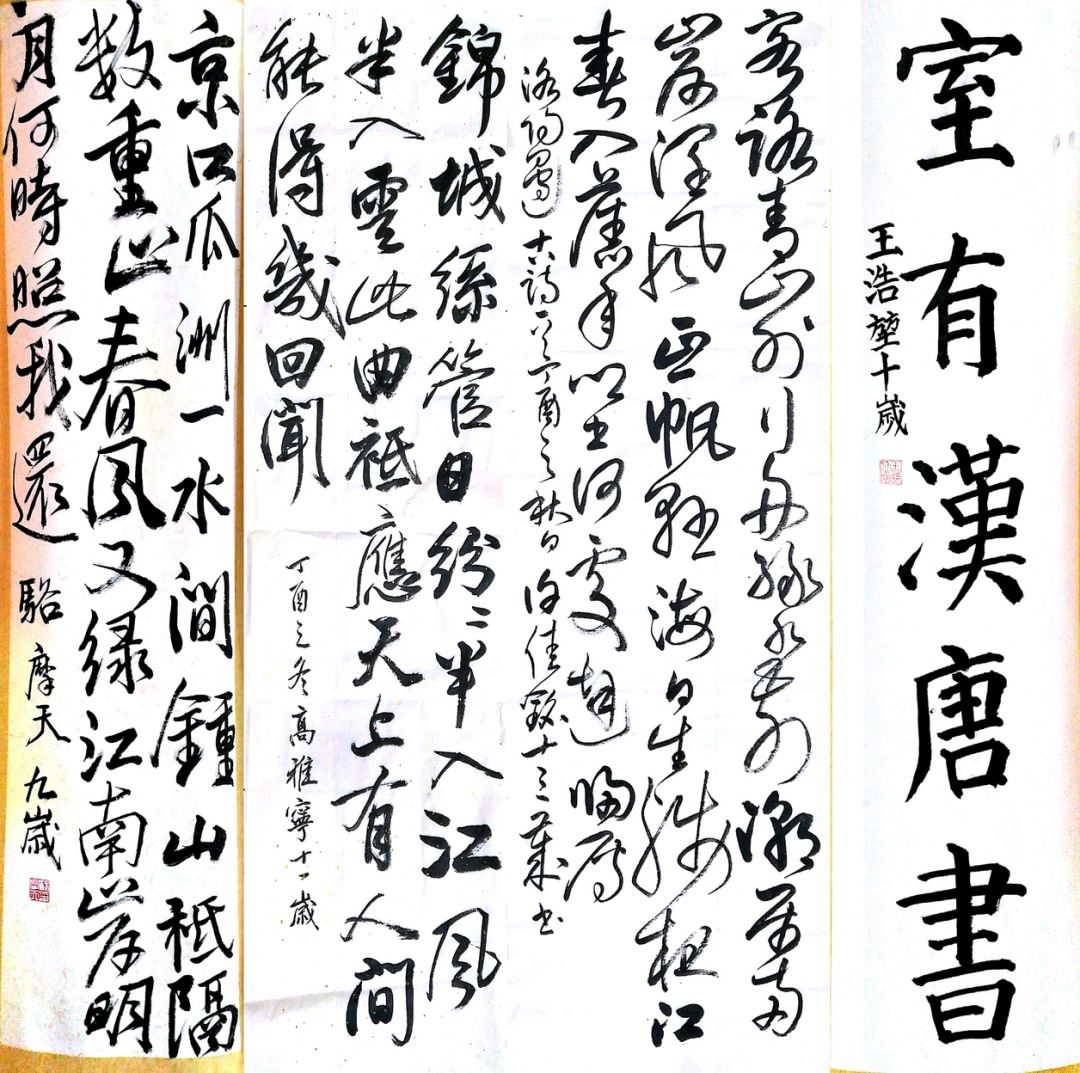 室有漢唐書
王浩堃十歲
客路青山外行舟綠水前潮平兩
岸濶風正帆懸海日生殘夜江
春入舊年鄉書何處達歸雁
洛陽邊 詩一首丁酉之秋日 佳 十三歲書
錦城絲管日紛〻半入江風
半入雲此曲祗應天上有人間
能得幾回聞
丁酉之冬高雅寧十一歲
京口瓜洲一水間鍾山祗隔
數重山春風又綠江南岸明
月何時照我還 駱摩天九歲